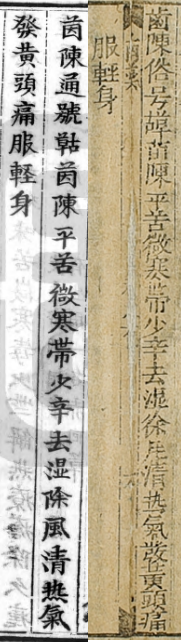 茵陳俗号茵陳平苦微寒帶少辛去湿徐清热氣發黄頭痛
服輕身
茵陳通號茵陳平苦微寒帶少辛去湿除風清热氣
發黄頭痛服輕身